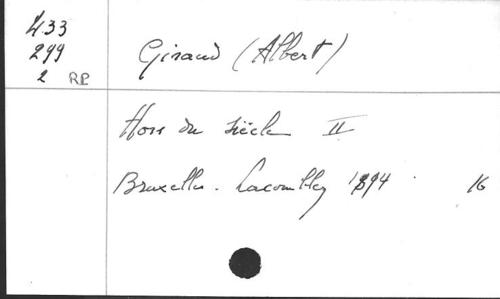 433
299
2 RP
Giraud (Albert)
Hors du siècle II
Bruxelles. Lacomblez 1894 16